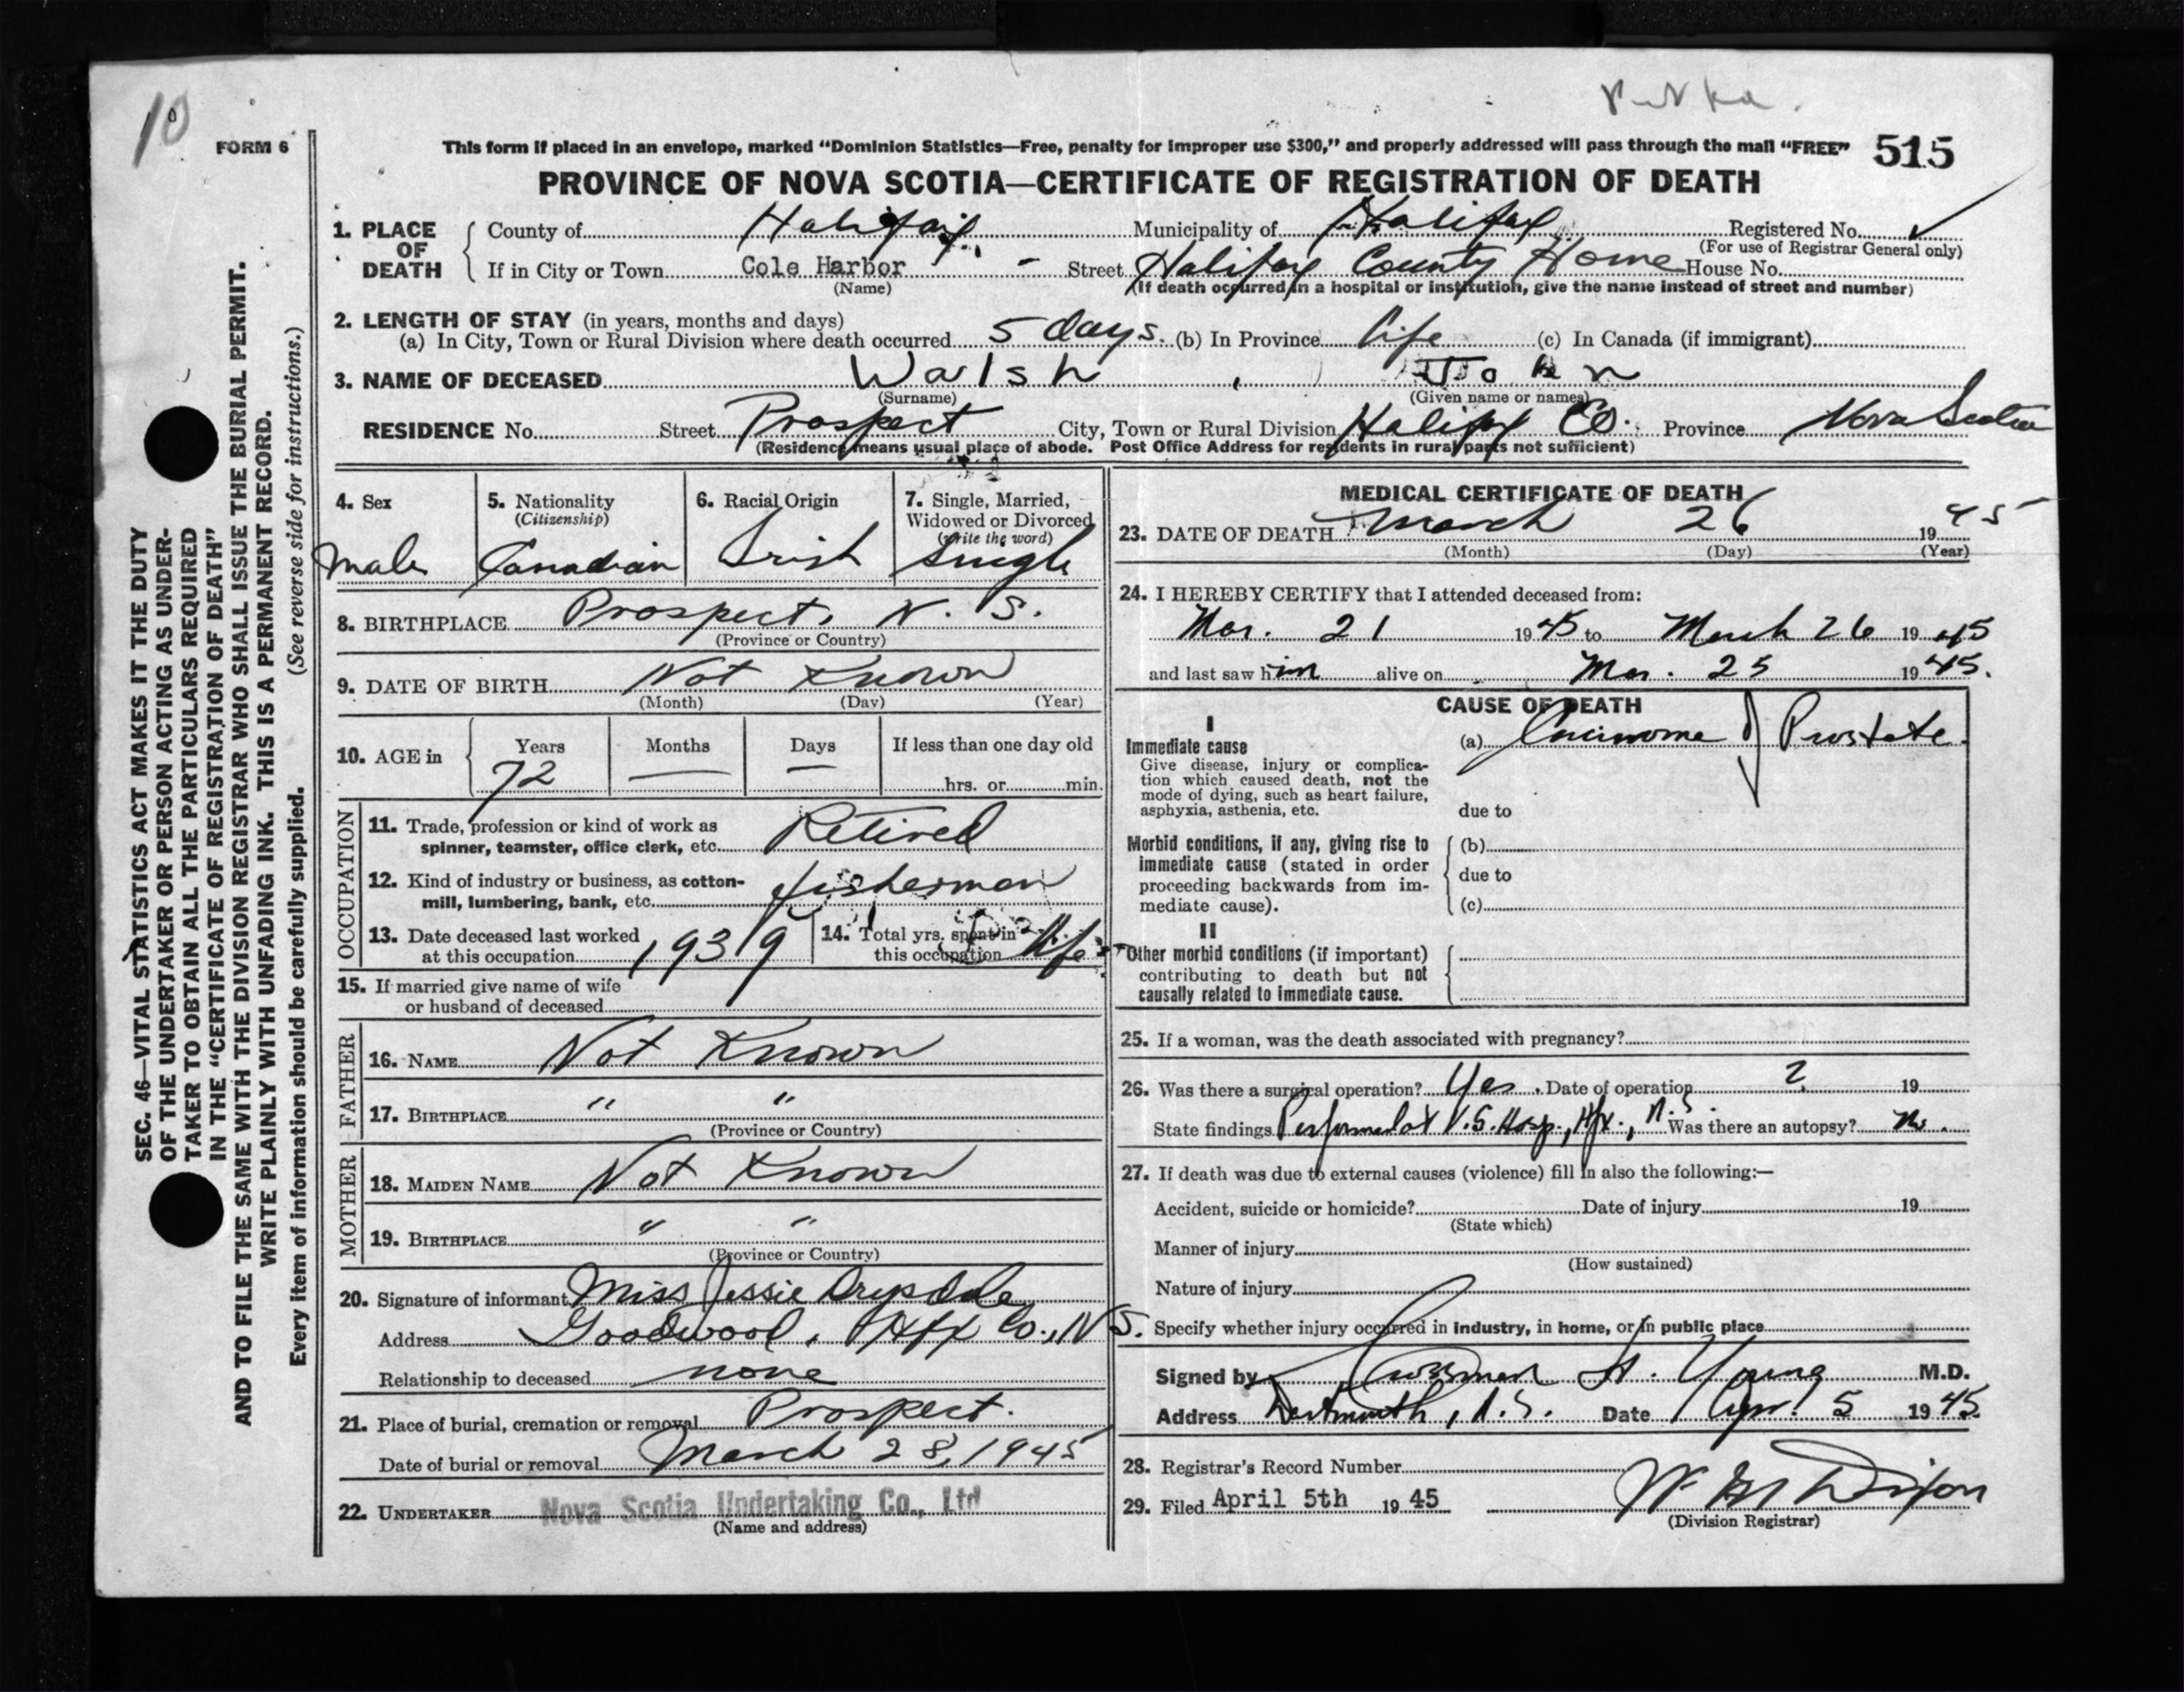 10
FORM 6
This form if placed in an envelope, marked "Dominion Statistics—Free, penalty for improper use $300," and properly addressed will pass through the mail "FREE" 515
PROVINCE OF NOVA SCOTIA—CERTIFICATE OF REGISTRATION OF DEATH
SEC. 46—VITAL STATISTICS ACT MAKES IT THE DUTY
OF THE UNDERTAKER OR PERSON ACTING AS UNDER-
TAKER TO OBTAIN ALL THE PARTICULARS REQUIRED
IN THE "CERTIFICATE OF REGISTRATION OF DEATH"
AND TO FILE THE SAME WITH THE DIVISION REGISTRAR WHO SHALL ISSUE THE BURIAL PERMIT.
WRITE PLAINLY WITH UNFADING INK. THIS IS A PERMANENT RECORD.
Every item of information should be carefully supplied. (See reverse side for instructions.)
1. PLACE OF DEATH
County of Halifax Municipality of Halifax Registered No. ✓
(For use of Registrar General only)
If in City or Town Cole Harbor - Street Halifax County Home House No.
(Name) (If death occurred in a hospital or institution, give the name instead of street and number)
2. LENGTH OF STAY (in years, months and days)
(a) In City, Town or Rural Division where death occurred 5 days. (b) In Province life (c) In Canada (if immigrant)
3. NAME OF DECEASED Walsh , John
(Surname) (Given name or names)
RESIDENCE No. Street Prospect City, Town or Rural Division Halifax Co. Province Nova Scotia
(Residence means usual place of abode. Post Office Address for residents in rural parts not sufficient)
4. Sex
Male
5. Nationality
(Citizenship)
Canadian
6. Racial Origin
Irish
7. Single, Married,
Widowed or Divorced
(write the word)
Single
8. BIRTHPLACE Prospect, N. S.
(Province or Country)
9. DATE OF BIRTH Not Known
(Month) (Day) (Year)
10. AGE in
Years Months Days If less than one day old
72 — — hrs. or min.
OCCUPATION
11. Trade, profession or kind of work as
spinner, teamster, office clerk, etc. Retired
12. Kind of industry or business, as cotton-
mill, lumbering, bank, etc. fisherman
13. Date deceased last worked
at this occupation 1939
14. Total yrs. spent in
this occupation life
15. If married give name of wife
or husband of deceased
FATHER
16. NAME Not Known
17. BIRTHPLACE " "
(Province or Country)
MOTHER
18. MAIDEN NAME Not Known
19. BIRTHPLACE " "
(Province or Country)
20. Signature of informant Miss Jessie Drysdale
Address Goodwood, Hfx Co., N S.
Relationship to deceased none
21. Place of burial, cremation or removal Prospect.
Date of burial or removal March 28, 1945
22. UNDERTAKER Nova Scotia Undertaking Co., Ltd
(Name and address)
MEDICAL CERTIFICATE OF DEATH
23. DATE OF DEATH March 26 1945
(Month) (Day) (Year)
24. I HEREBY CERTIFY that I attended deceased from:
Mar. 21 1945 to March 26 1945
and last saw him alive on Mar. 25 1945.
CAUSE OF DEATH
I
Immediate cause
Give disease, injury or complica-
tion which caused death, not the
mode of dying, such as heart failure,
asphyxia, asthenia, etc.
(a) Carcinoma of Prostate.
due to
Morbid conditions, if any, giving rise to
immediate cause (stated in order
proceeding backwards from im-
mediate cause).
(b)
due to
(c)
II
Other morbid conditions (if important)
contributing to death but not
causally related to immediate cause.
25. If a woman, was the death associated with pregnancy?
26. Was there a surgical operation? Yes. Date of operation ? 19
State findings Performed at V.G. Hosp., Hfx., N.S. Was there an autopsy? No.
27. If death was due to external causes (violence) fill in also the following:—
Accident, suicide or homicide? Date of injury 19
(State which)
Manner of injury
(How sustained)
Nature of injury
Specify whether injury occurred in industry, in home, or in public place
Signed by H. Young M.D.
Address Dartmouth, N.S. Date Apr. 5 1945
28. Registrar's Record Number
29. Filed April 5th 1945 Dixon
(Division Registrar)